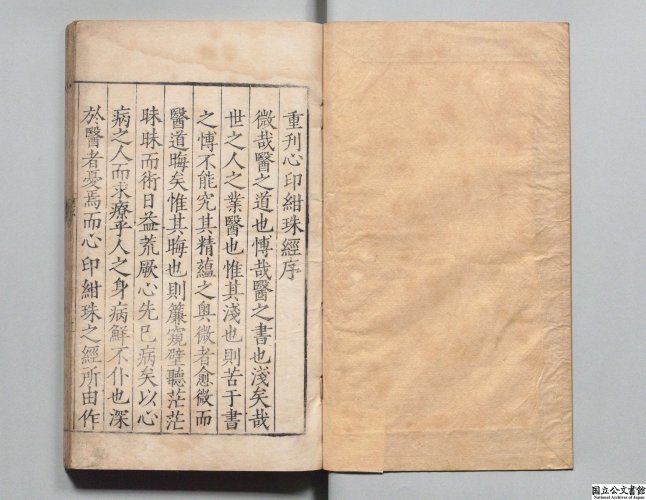 重刊心印紺珠經序
微哉醫之道也博哉醫之書也淺矣哉
世之人之業醫也惟其淺也則苦于書
之博不能究其精蘊之奥微者愈微而
醫道晦矣惟其晦也則簾窺壁聽茫茫
昧昧而術日益荒厥心先已病矣以心
病之人而求療乎人之身病鮮不仆也深
於醫者憂焉而心印紺珠之經所由作
国立公文書館
National Archives of Japan